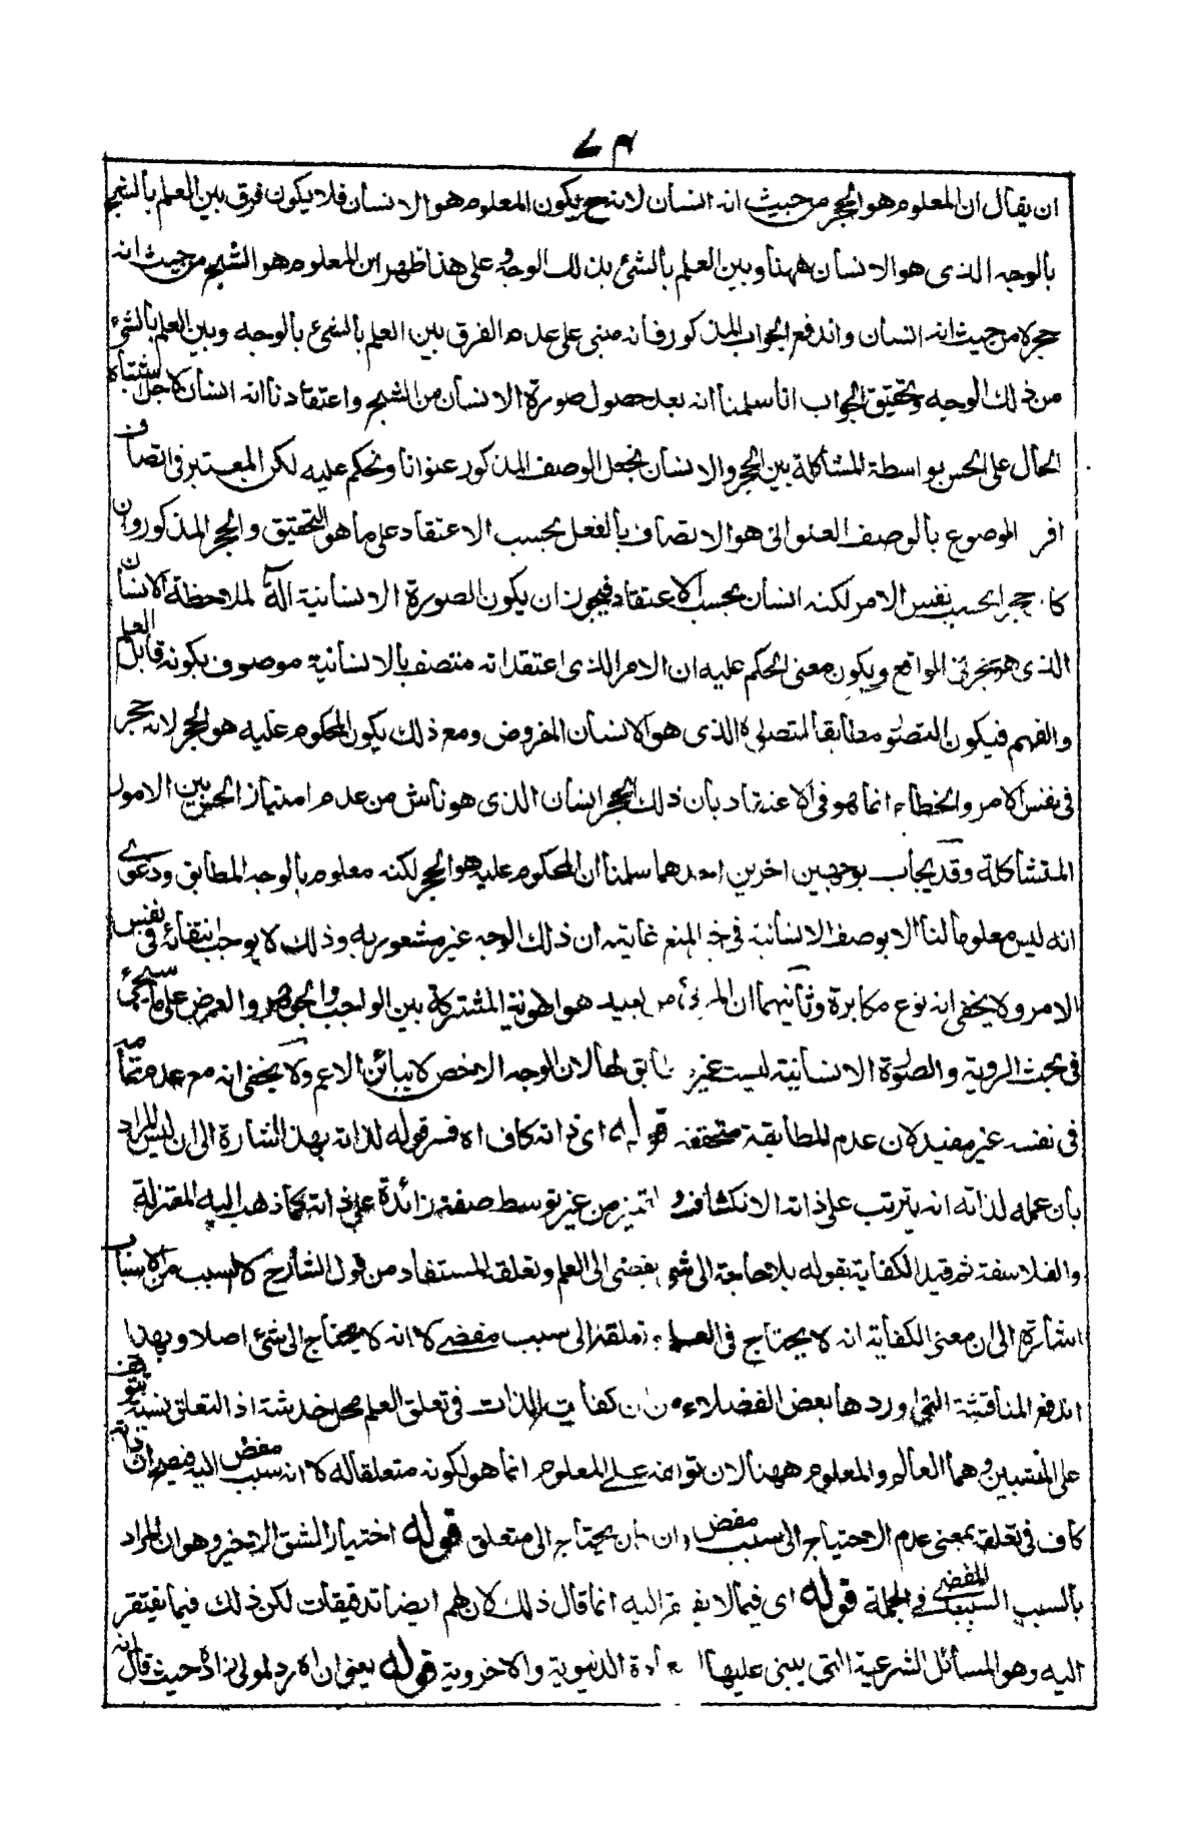 ٧٣
ان يقال ان المعلوم هو الحجر من حيث انه انسان لانه ح يكون المعلوم هو الانسان فلا يكون فرق بين العلم بالشبح
بالوجه الذى هو الانسان ههنا وبين العلم بالشئ بذلك الوجه وعلى هذا ظهر ان المعلوم هو الشبح من حيث انه
حجر لا من حيث انه انسان واندفع الجواب المذكور فانه مبنى على عدم الفرق بين العلم بالشئ بالوجه وبين العلم بالشئ
من ذلك الوجه وتحقيق الجواب انا سلمنا انه بعد حصول صورة الانسان من الشبح واعتقادنا انه انسان لاجل اشتباه
الحال على الحس بواسطة المشاكلة بين الحجر والانسان نجعل الوصف المذكور عنوانا ونحكم عليه لكن المعتبر فى اتصاف
افر الموضوع بالوصف العنوانى هو الاتصاف بالفعل بحسب الاعتقاد على ما هو التحقيق والحجر المذكور وان
كا. حجرا بحسب نفس الامر لكنه انسان بحسب الاعتقاد فيجوز ان يكون الصورة الانسانية آلة لملاحظة الانسان
الذى هو حجر فى الواقع ويكون معنى الحكم عليه ان الامر الذى اعتقد انه متصف بالانسانية موصوف بكونه قابل العلم
والفهم فيكون التصور مطابقا لمتصوره الذى هو الانسان المفروض ومع ذلك يكون المحكوم عليه هو الحجر لانه حجر
فى نفس الامر والخطاء انما هو فى الاعتقاد بان ذلك الحجر انسان الذى هو ناش من عدم امتياز الحس بين الامور
المتشاكلة وقد يجاب بوجهين اخرين احدهما سلمنا ان المحكوم عليه هو الحجر لكنه معلوم بالوجه المطابق ودعوى
انه ليس معلوما لنا الا بوصف الانسانية فى حيز المنع غايته ان ذلك الوجه غير مشعور به وذلك لا يوجب انتفائه فى نفس
الامر ولا يخفى انه نوع مكابرة وثانيهما ان المرئى من بعيد هو الهوية المشتركة بين الواجب والجوهر والعرض على ما سيجئ
فى بحث الروية والصورة الانسانية ليست غير مطابق لها لان الوجه الاخص لا يبائن الاعم ولا يخفى انه مع عدم تمامه
فى نفسه غير مفيد لان عدم المطابقة متحققة قوله اى ذاته كاف اه فسر قوله لذاته بهذا اشارة الى ان ليس المراد
بان عمله لذاته انه يترتب على ذاته الانكشاف والتميز من غير توسط صفة زائدة على ذاته كما ذهب اليه المعتزلة
والفلاسفة ثم قيد الكفاية بقوله بلا حاجة الى شئ يفضى الى العلم وتعلقه المستفاد من قول الشارح لا لسبب من الاسباب
اشارة الى ان معنى الكفاية انه لا يحتاج فى العلم وتعلقه الى سبب مفضى لا انه لا يحتاج الى شئ اصلا وبهذا
اندفع المناقشة التى اوردها بعض الفضلاء من ان كفاية الذات فى تعلق العلم محل خدشة اذ التعلق نسبة يتوقف
على المنتسبين وهما العالم والمعلوم ههنا لان توقفه على المعلوم انما هو لكونه متعلقا له لا انه سبب مفض اليه فيصح ان ذاته
كاف فى تعلقه بمعنى عدم الاحتياج الى سبب مفض وان كان يحتاج الى متعلق قوله اختيار الشق الاخير وهو ان المراد
بالسبب السبب المفضى فى الجملة قوله اى فيما لا يفتقر اليه انما قال ذلك لان لهم ايضا تدقيقات لكن ذلك فيما يفتقر
اليه وهو المسائل الشرعية التى يبنى عليها السعادة الدنيوية والاخروية قوله يعنى ان اه رد لمولى زاده حيث قال انه